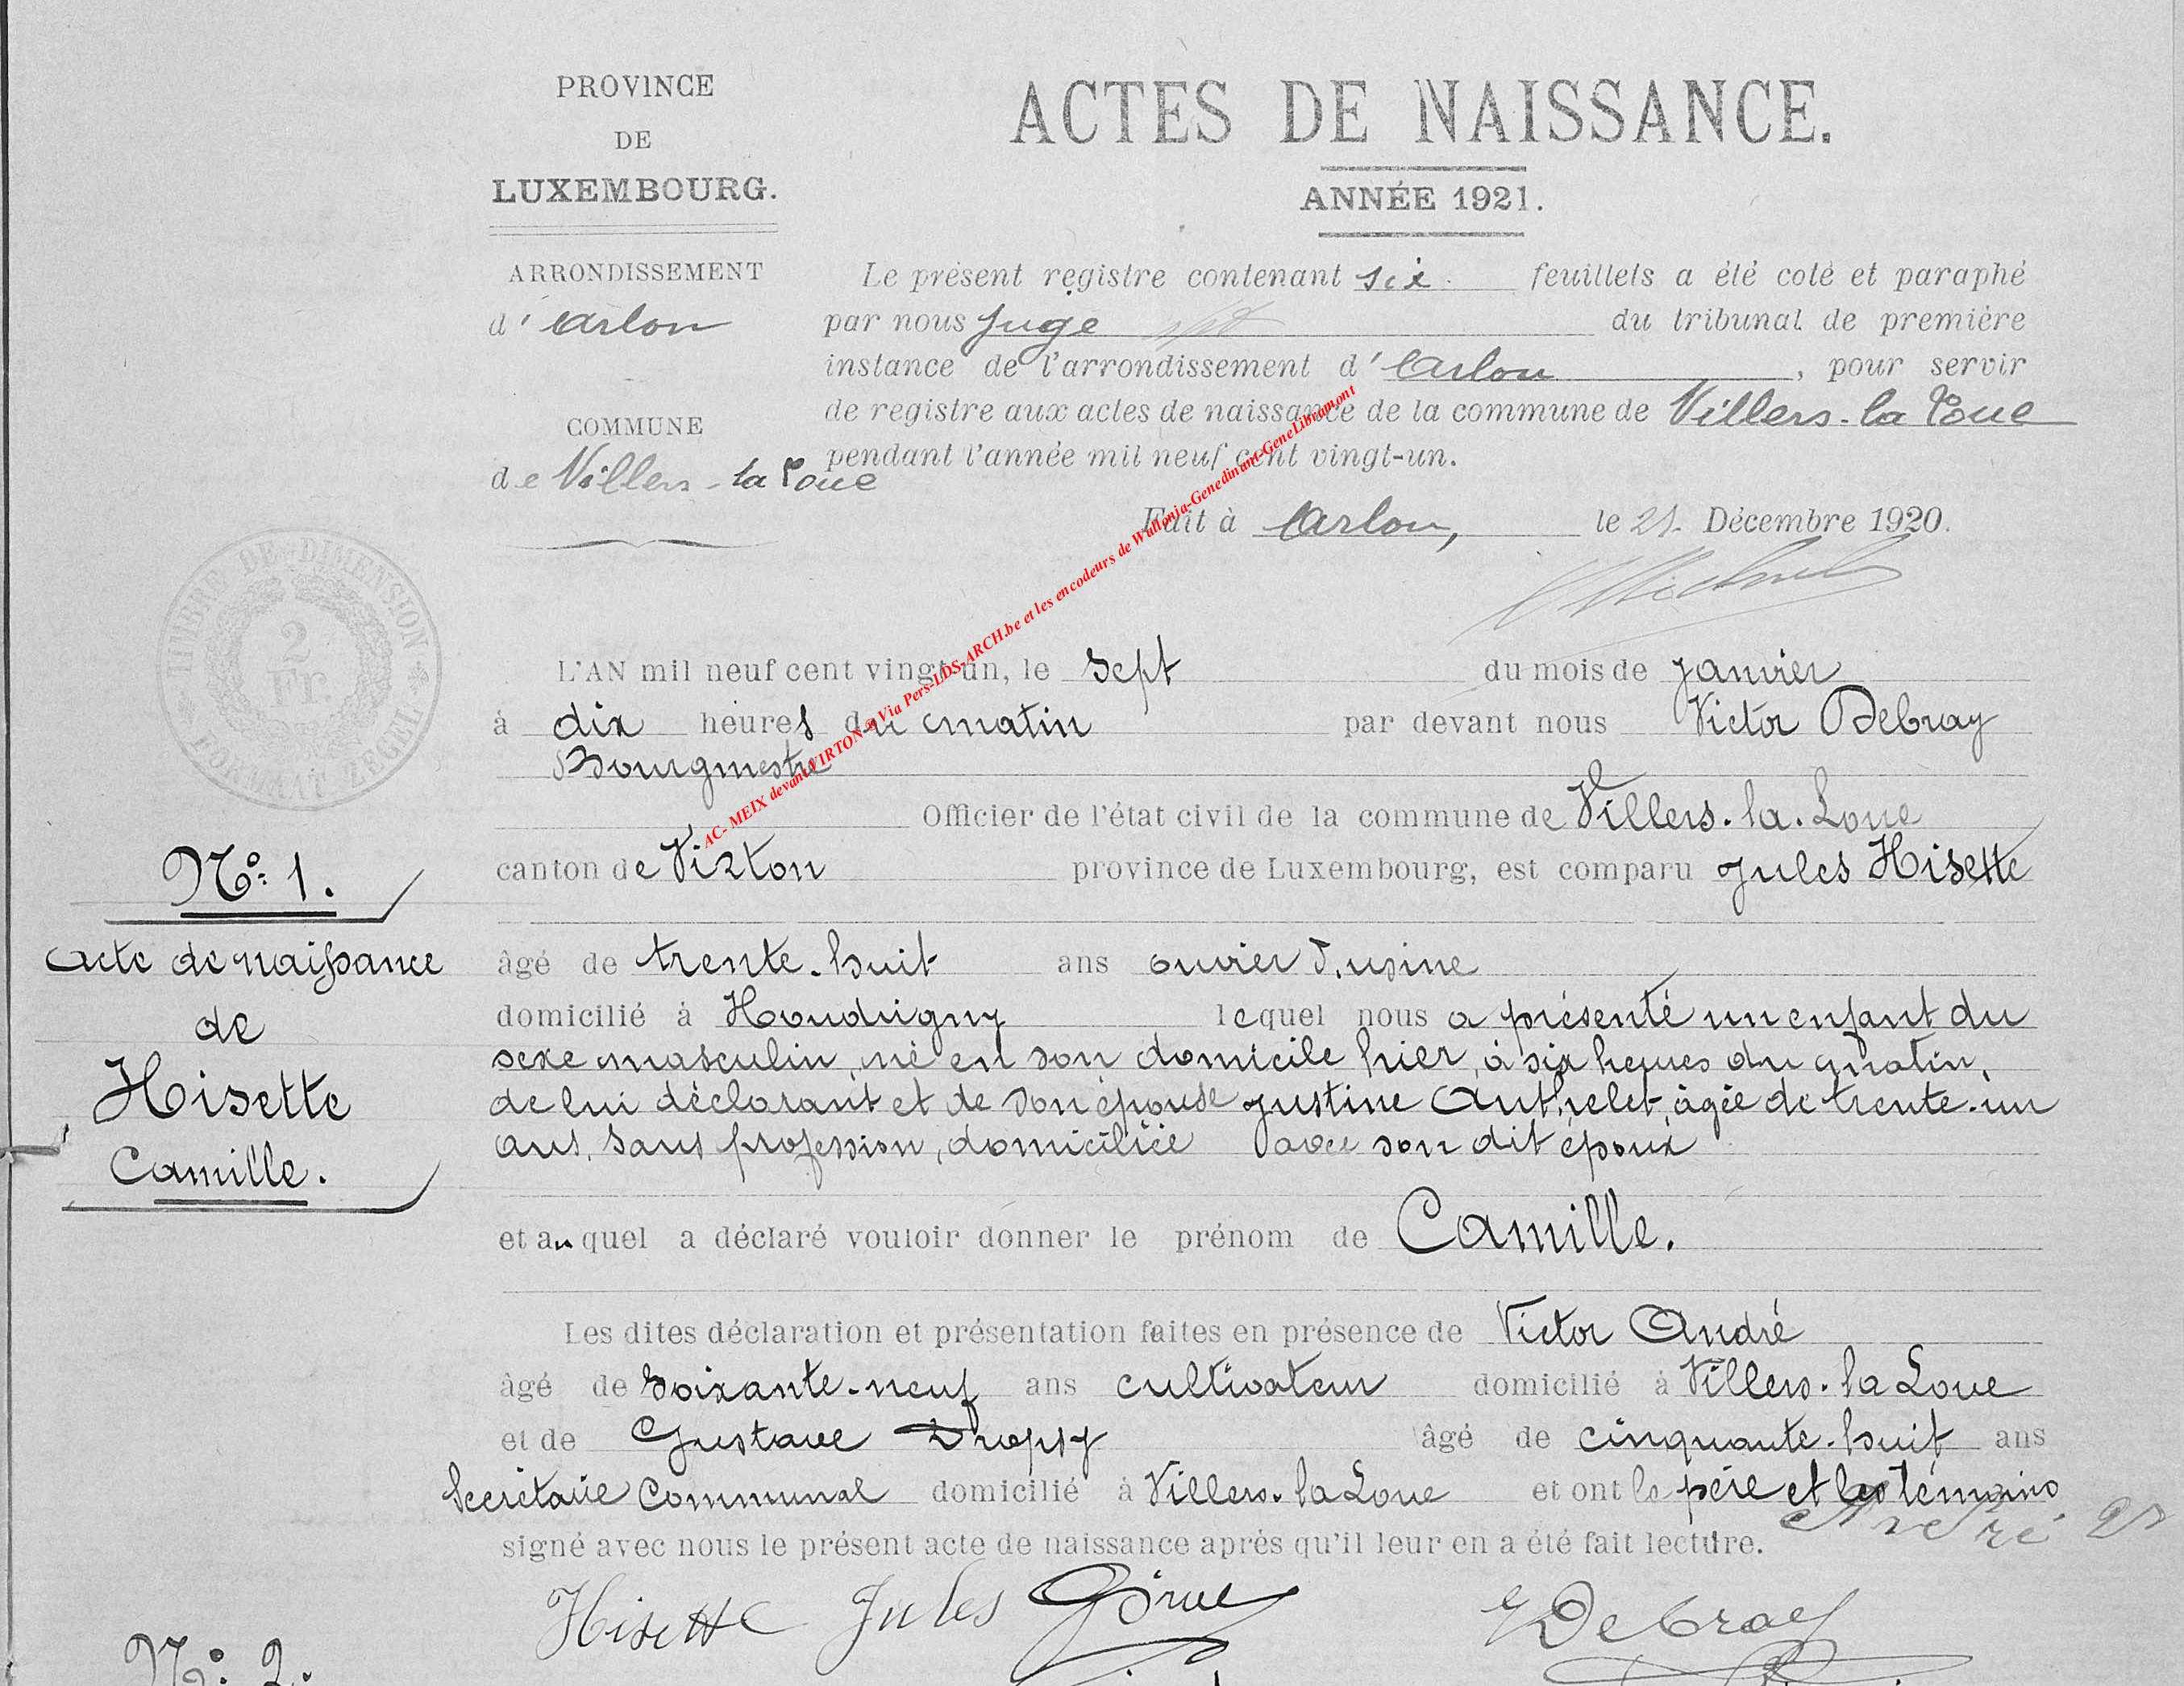 PROVINCE
DE
LUXEMBOURG.
ARRONDISSEMENT
d'Arlon
COMMUNE
de Villers-la Loue
ACTES DE NAISSANCE.
ANNÉE 1921.
Le présent registre contenant six feuillets a été coté et paraphé
par nous Juge du tribunal de première
instance de l'arrondissement d'Arlon, pour servir
de registre aux actes de naissance de la commune de Villers-la Loue
pendant l'année mil neuf cent vingt-un.
Fait à Arlon, le 21 Décembre 1920.
TIMBRE DE DIMENSION
2
Fr.
AC- MEIX devant VIRTON Via Pers-LDS-ARCH.be et les encodeurs de Wallonia-Genedinant-GeneLibramont
L'AN mil neuf cent vingt-un, le sept du mois de janvier
à dix heures du matin par devant nous Victor Debray
Bourgmestre
Officier de l'état civil de la commune de Villers-la-Loue
canton de Virton province de Luxembourg, est comparu Jules Hisette
âgé de trente-huit ans ouvrier d'usine
domicilié à Houdrigny lequel nous a présenté un enfant du
sexe masculin, né en son domicile hier, à six heures du matin,
de lui déclarant et de son épouse Justine Anthelet, âgée de trente-un
ans, sans profession, domiciliée avec son dit époux
et auquel a déclaré vouloir donner le prénom de Camille.
Les dites déclaration et présentation faites en présence de Victor André
âgé de soixante-neuf ans cultivateur domicilié à Villers-la Loue
et de Gustave Dropsy âgé de cinquante-huit ans
Secrétaire Communal domicilié à Villers-la Loue et ont le père et les témoins
signé avec nous le présent acte de naissance après qu'il leur en a été fait lecture.
Hisette Jules Debray
N° 1.
Acte de naissance
de
Hisette
Camille.
N° 2.